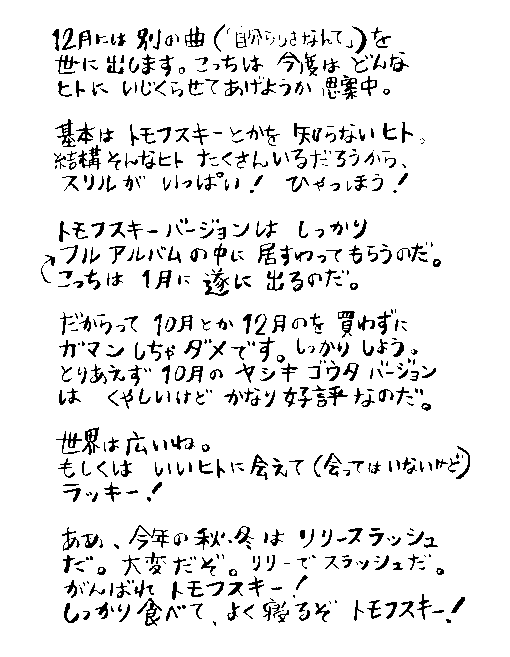 12月には 別の曲(「自分らしさなんて」)を
世に出します。こっちは 今度は どんな
ヒトに いじくらせてあげようか 思案中。
基本は トモフスキーとかを 知らないヒト。
結構そんなヒト たくさんいるだろうから、
スリルが いっぱい! ひゃっほう!
トモフスキーバージョンは しっかり
フルアルバムの中に 居すわってもらうのだ。
こっちは 1月に 遂に 出るのだ。
だからって 10月とか12月のを 買わずに
ガマンしちゃダメです。しっかりしよう。
とりあえず 10月の ヤシキゴウタバージョン
は くやしいけど かなり好評なのだ。
世界は広いね。
もしくは いいヒトに会えて(会ってはいないけど)
ラッキー!
ああ、今年の秋、冬は リリースラッシュ
だ。大変だぞ。リリーでスラッシュだ。
がんばれ トモフスキー!
しっかり食べて、よく寝るぞ トモフスキー!